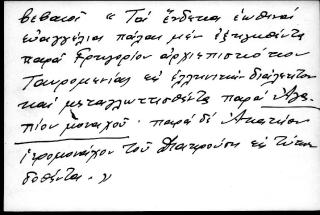 βεβαιοῖ "Τὰ ἕνδεκα ἑωθινὰ
εὐαγγέλια πάλαι μὲν ἐξηγηθέντα
παρὰ Γρηγορίου ἀρχιεπισκόπου
Ταυρομενίας εἰς ἑλληνικὴν διάλεκτον
καὶ μεταγλωττισθέντα παρὰ Ἀγα-
πίου μοναχοῦ. παρὰ δὲ Ἀκακίου
ἱερομονάχου τοῦ Διακρούση εἰς τύπον
δοθέντα.